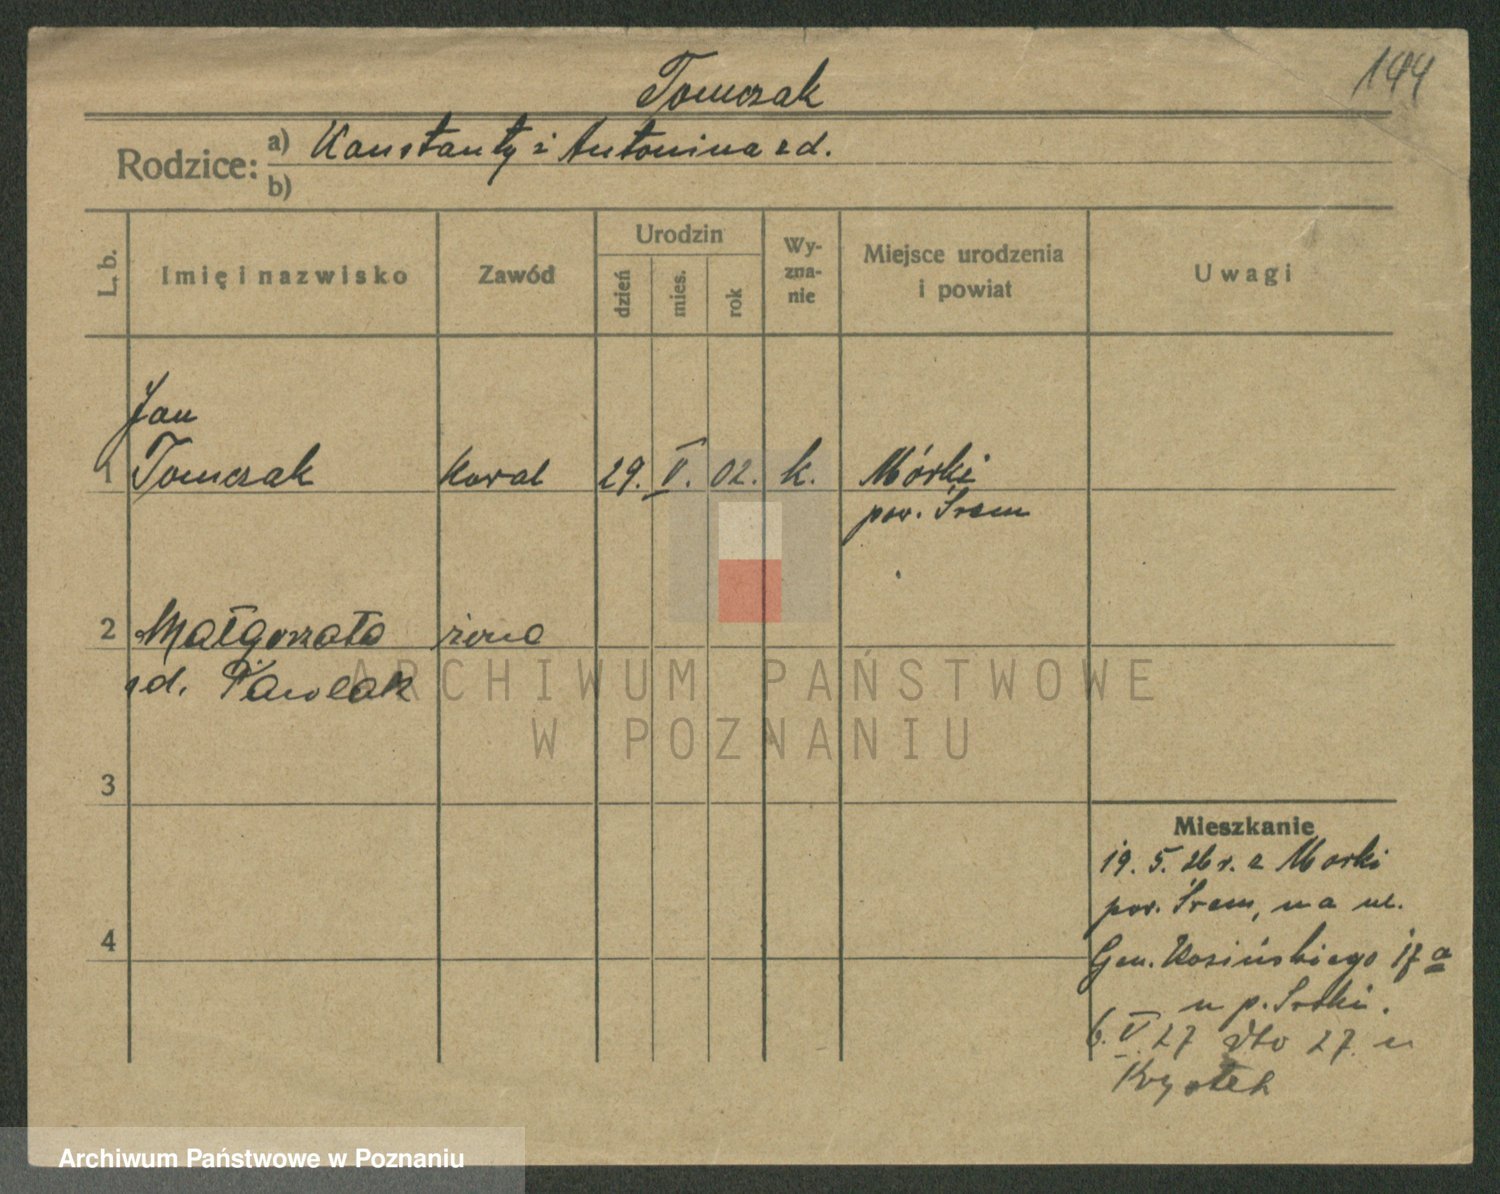 Tomczak
144
Rodzice: a) Konstanty i Antonina z d.
b)
L. b. Imię i nazwisko Zawód Urodzin dzień mies. rok Wyznanie Miejsce urodzenia i powiat Uwagi
Jan
1 Tomczak kowal 29. V. 02. k. Mórki
pow. Śrem
2 Małgorzata żona
zd. Pawlak
3
4
Mieszkanie
19. 5. 26 r. z Morki
pow. Śrem, na ul.
Gen. Kosińskiego 17a
u p.
6. V. 27 dto 27. u
ARCHIWUM PAŃSTWOWE
W POZNANIU
Archiwum Państwowe w Poznaniu